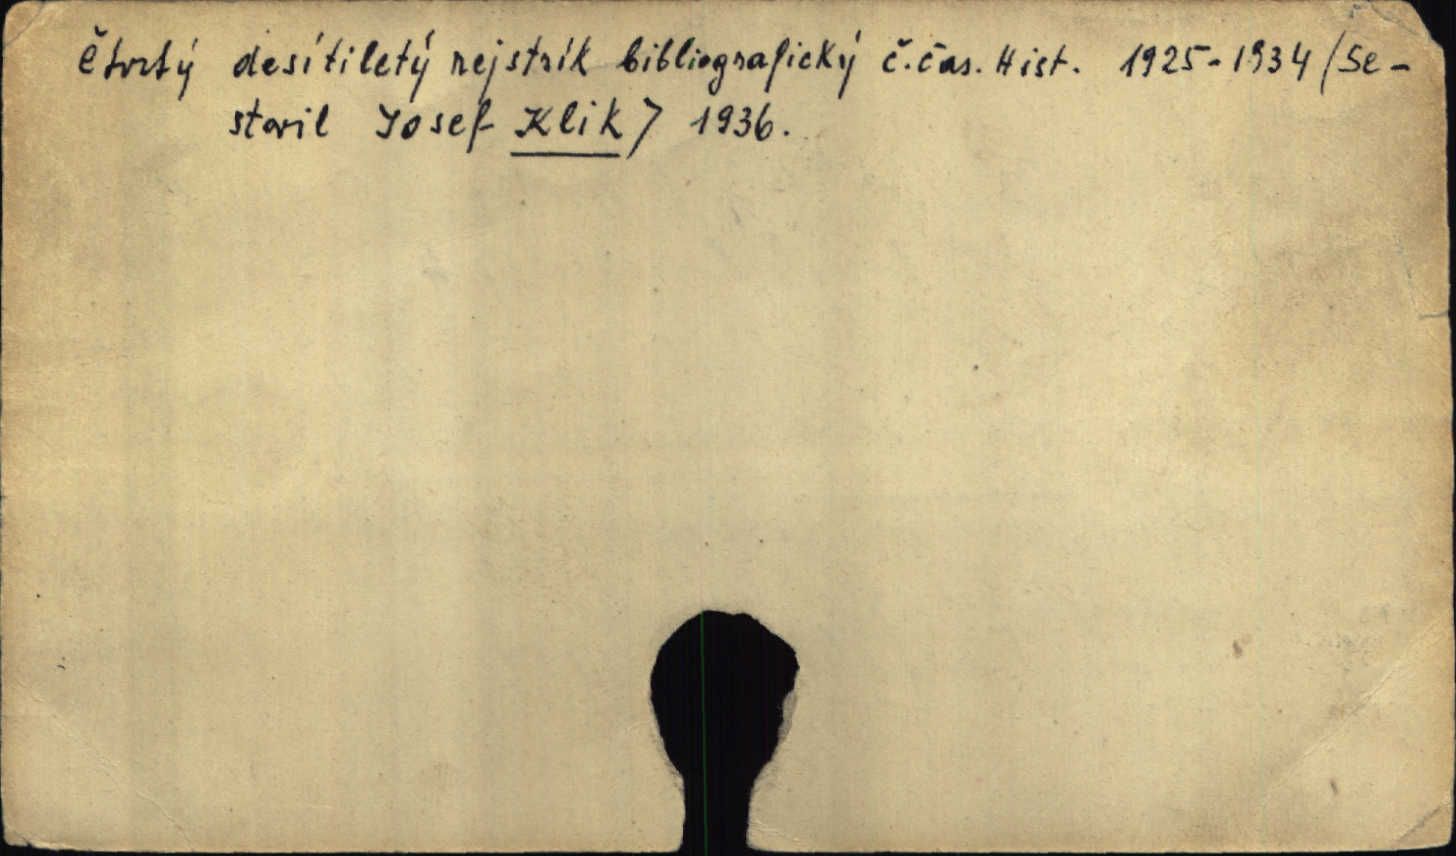 Čtvrtý desítiletý rejstrík bibliografický č.čas. Hist. 1925-1934 (Se-
stavil Josef Klik) 1936.